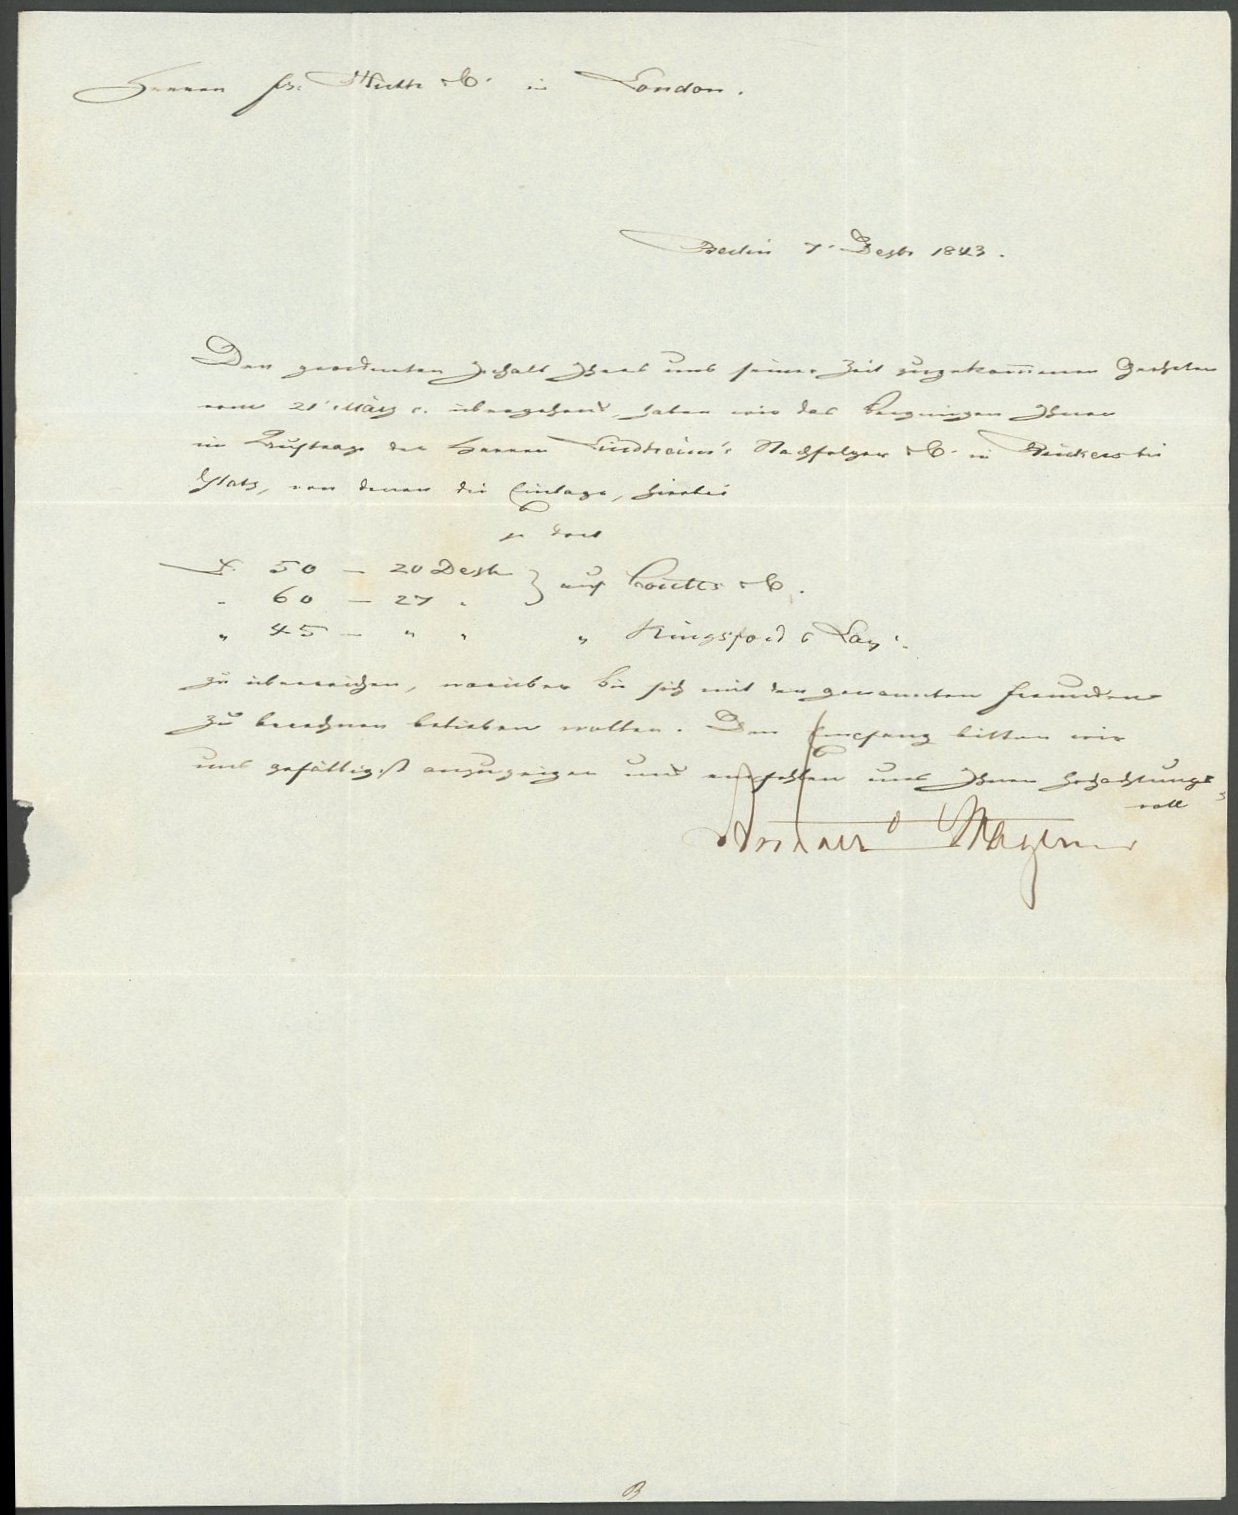 Herren Fr. Huth & C° in London.
Berlin 7' Dezbr 1843.
Den geordneten Inhalt Ihres uns seiner Zeit zugekommenen Geehrten
vom 21' März c. übergehend, haben wir das Vergnügen Ihnen
im Auftrage der Herren Lindheim's Nachfolger & C° in Rückers bei
Glatz, von denen die Einlage, hierbei
£ 50 — 20 Dezbr } auf Coutts & C°.
" 60 — 27 "
" 45 — " " " Kingsford & Lay.
zu überreichen, worüber Sie sich mit den genannten Freunden
zu berechnen belieben wollen. Den Empfang bitten wir
uns gefälligst anzuzeigen und empfehlen uns Ihnen hochachtungs-
voll
Magnus
B